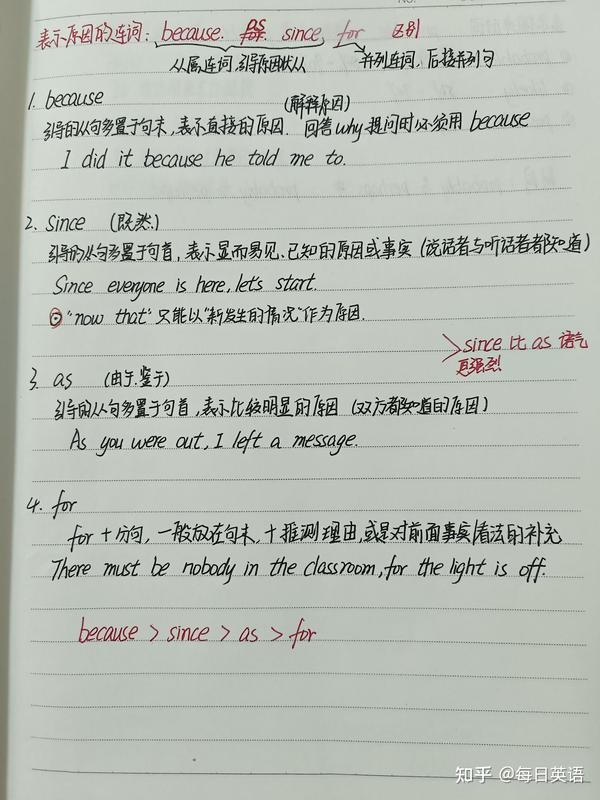 表示原因的连词: because. as. since, for 区别
从属连词,引导原因状从 并列连词,后接并列句
1. because (解释原因)
引导的从句多置于句末,表示直接的原因. 回答why提问时必须用because
I did it because he told me to.
2. since (既然)
引导的从句多置于句首,表示显而易见、已知的原因或事实(说话者与听话者都知道)
Since everyone is here, let's start.
⊙"now that"只能以"新发生的情况"作为原因.
>since 比 as 语气
更强烈
3. as (由于.鉴于)
引导的从句多置于句首,表示比较明显的原因 (双方都知道的原因)
As you were out, I left a message.
4. for
for+分句,一般放在句末,+推测理由,或是对前面事实/看法的补充
There must be nobody in the classroom, for the light is off.
because > since > as > for
知乎 @每日英语